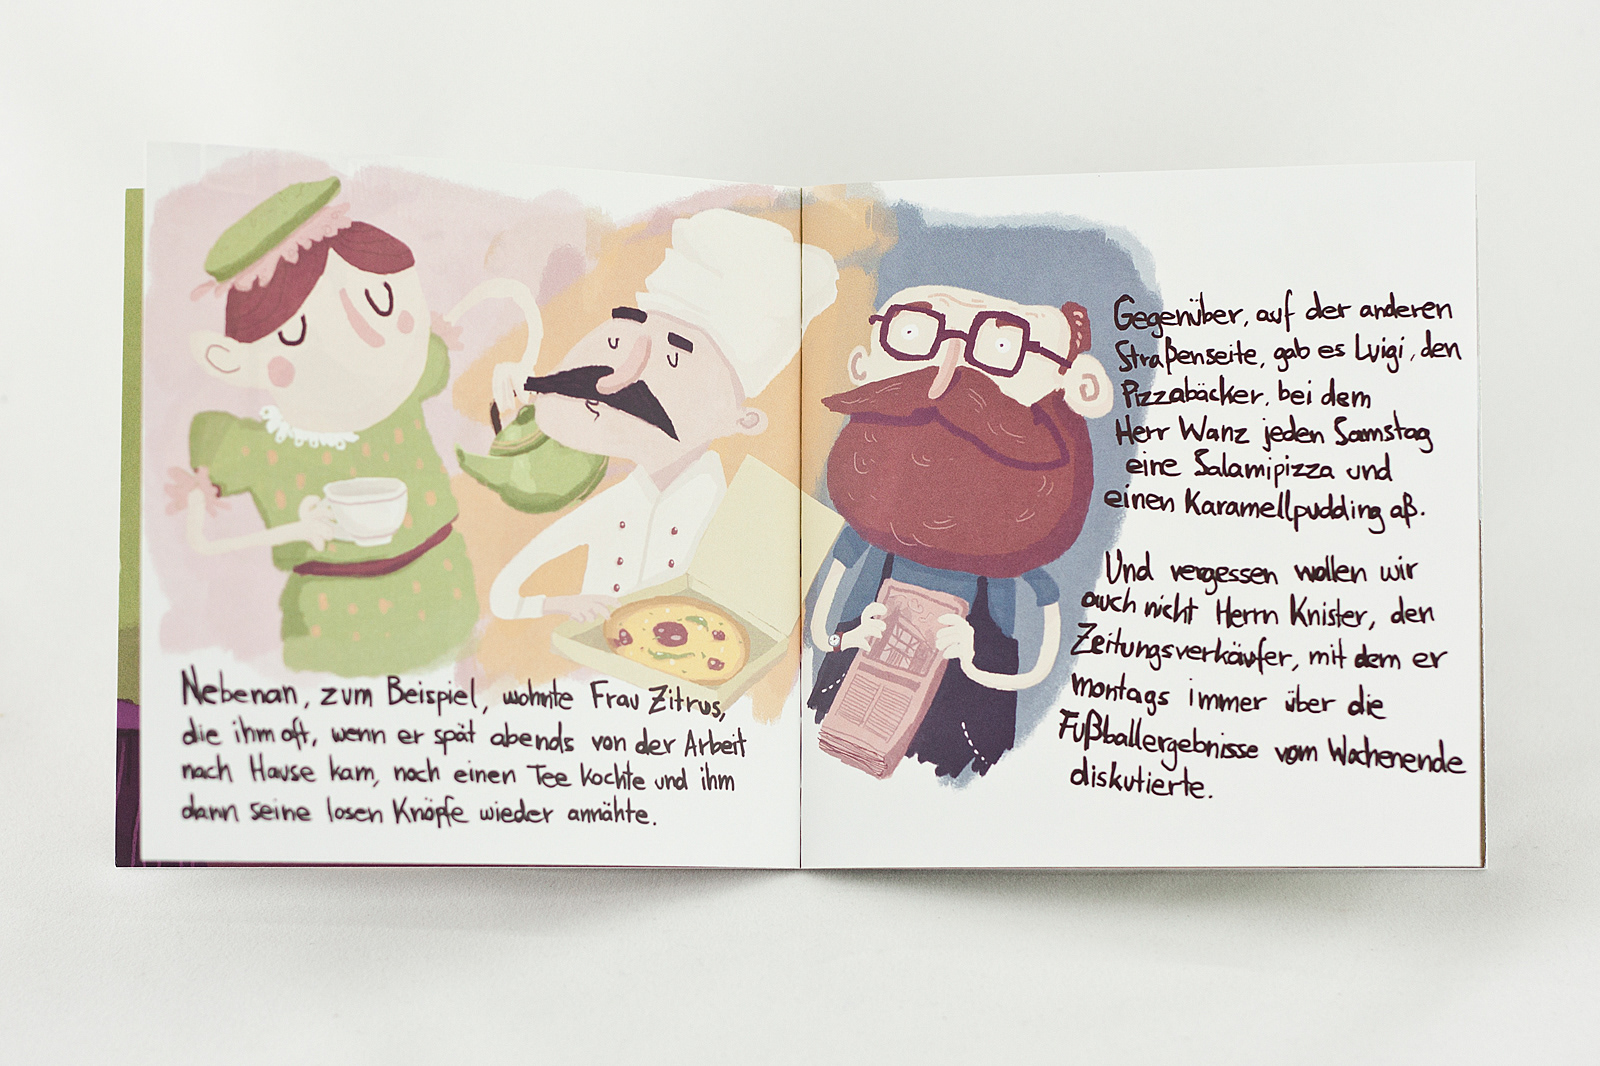 Nebenan, zum Beispiel, wohnte Frau Zitrus,
die ihm oft, wenn er spät abends von der Arbeit
nach Hause kam, noch einen Tee kochte und ihm
dann seine losen Knöpfe wieder annähte.
Gegenüber, auf der anderen
Straßenseite, gab es Luigi, den
Pizzabäcker, bei dem
Herr Wanz jeden Samstag
eine Salamipizza und
einen Karamellpudding aß.
Und vergessen wollen wir
auch nicht Herrn Knister, den
Zeitungsverkäufer, mit dem er
montags immer über die
Fußballergebnisse vom Wochenende
diskutierte.